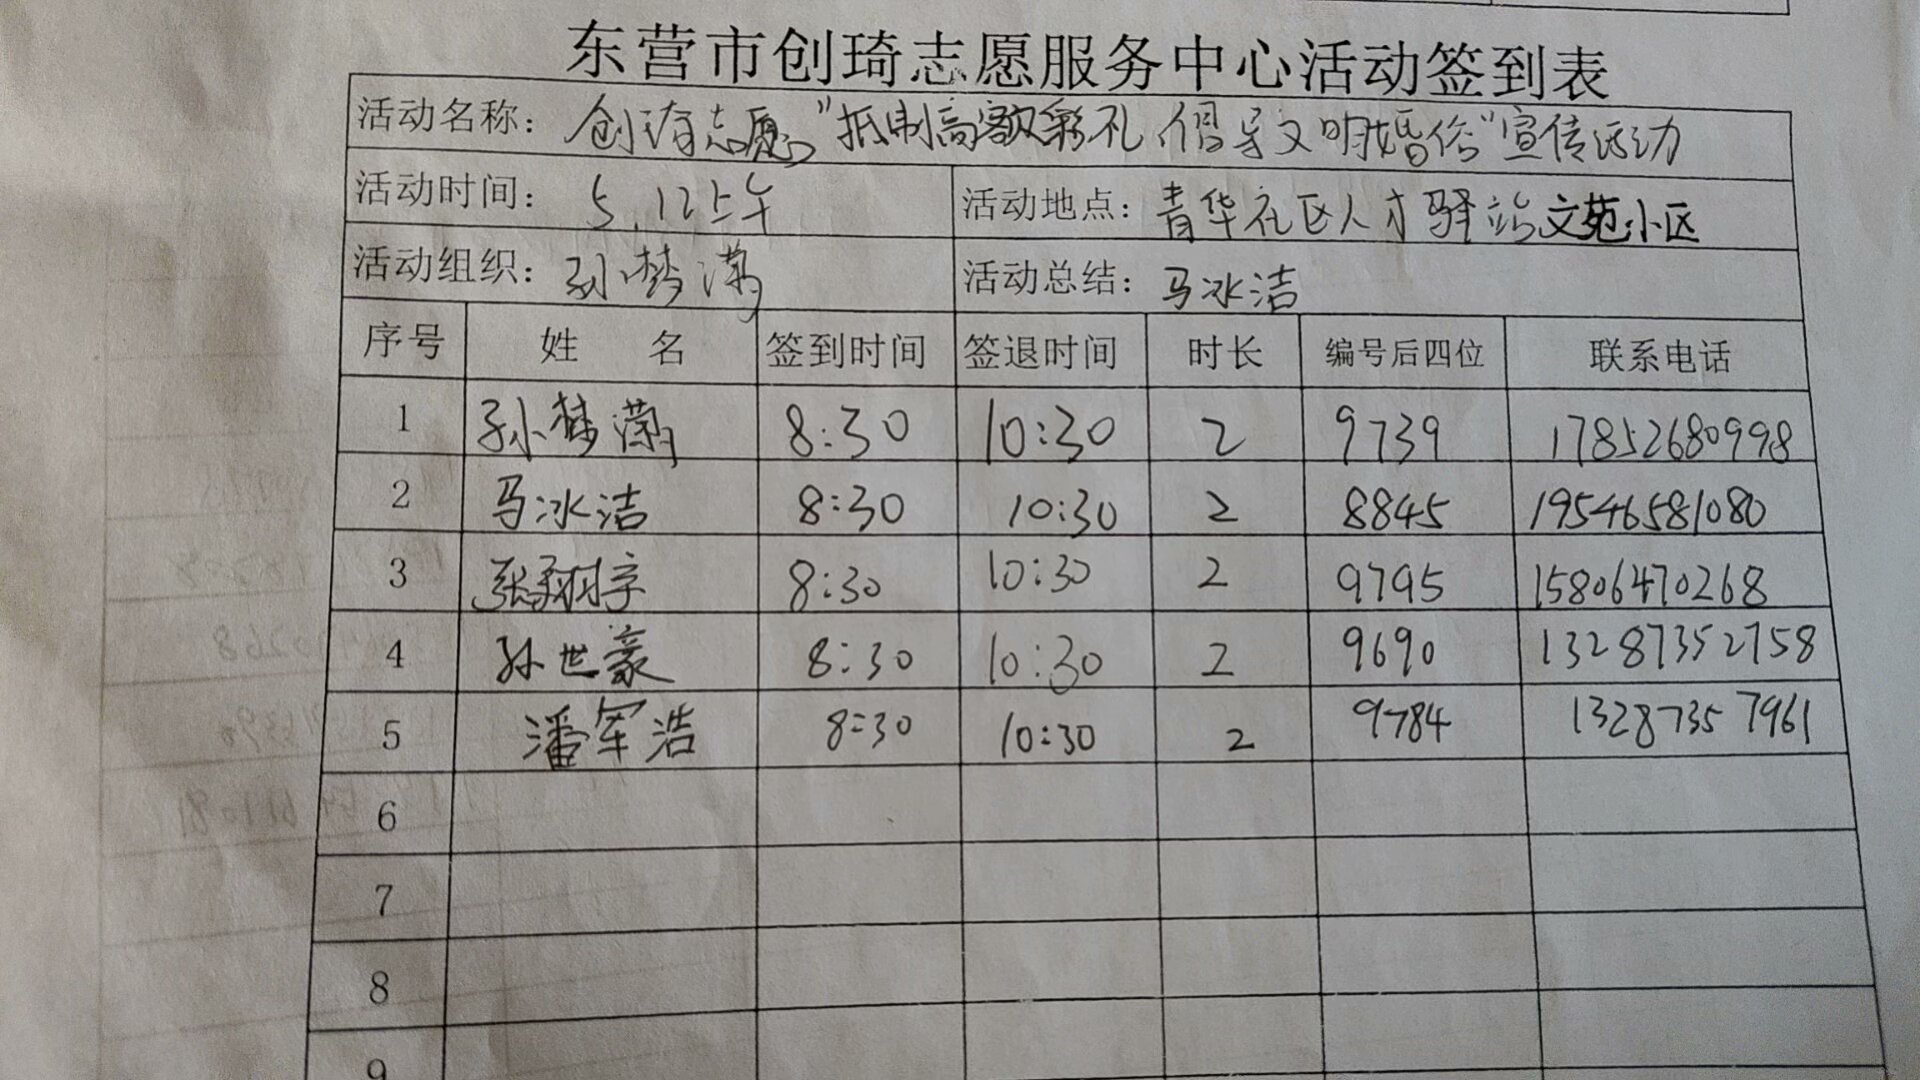 东营市创琦志愿服务中心活动签到表
活动名称: 创琦志愿"抵制高额彩礼 倡导文明婚俗"宣传活动
活动时间: 5.12上午 活动地点: 青华社区人才驿站文苑小区
活动组织: 孙梦潇 活动总结: 马冰洁
序号 姓 名 签到时间 签退时间 时长 编号后四位 联系电话
1 孙梦潇 8:30 10:30 2 9739 17852680998
2 马冰洁 8:30 10:30 2 8845 19546581080
3 张翔宇 8:30 10:30 2 9795 15806470268
4 孙世豪 8:30 10:30 2 9690 13287352758
5 潘军浩 8:30 10:30 2 9784 13287357961
6
7
8
9